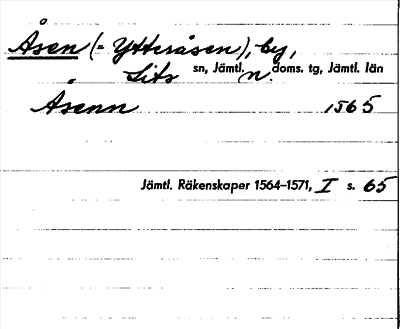 Åsen (= Ytteråsen), by,
Lits sn, Jämtl. n. doms. tg, Jämtl. län
Åsenn 1565
Jämtl. Räkenskaper 1564–1571, I s. 65